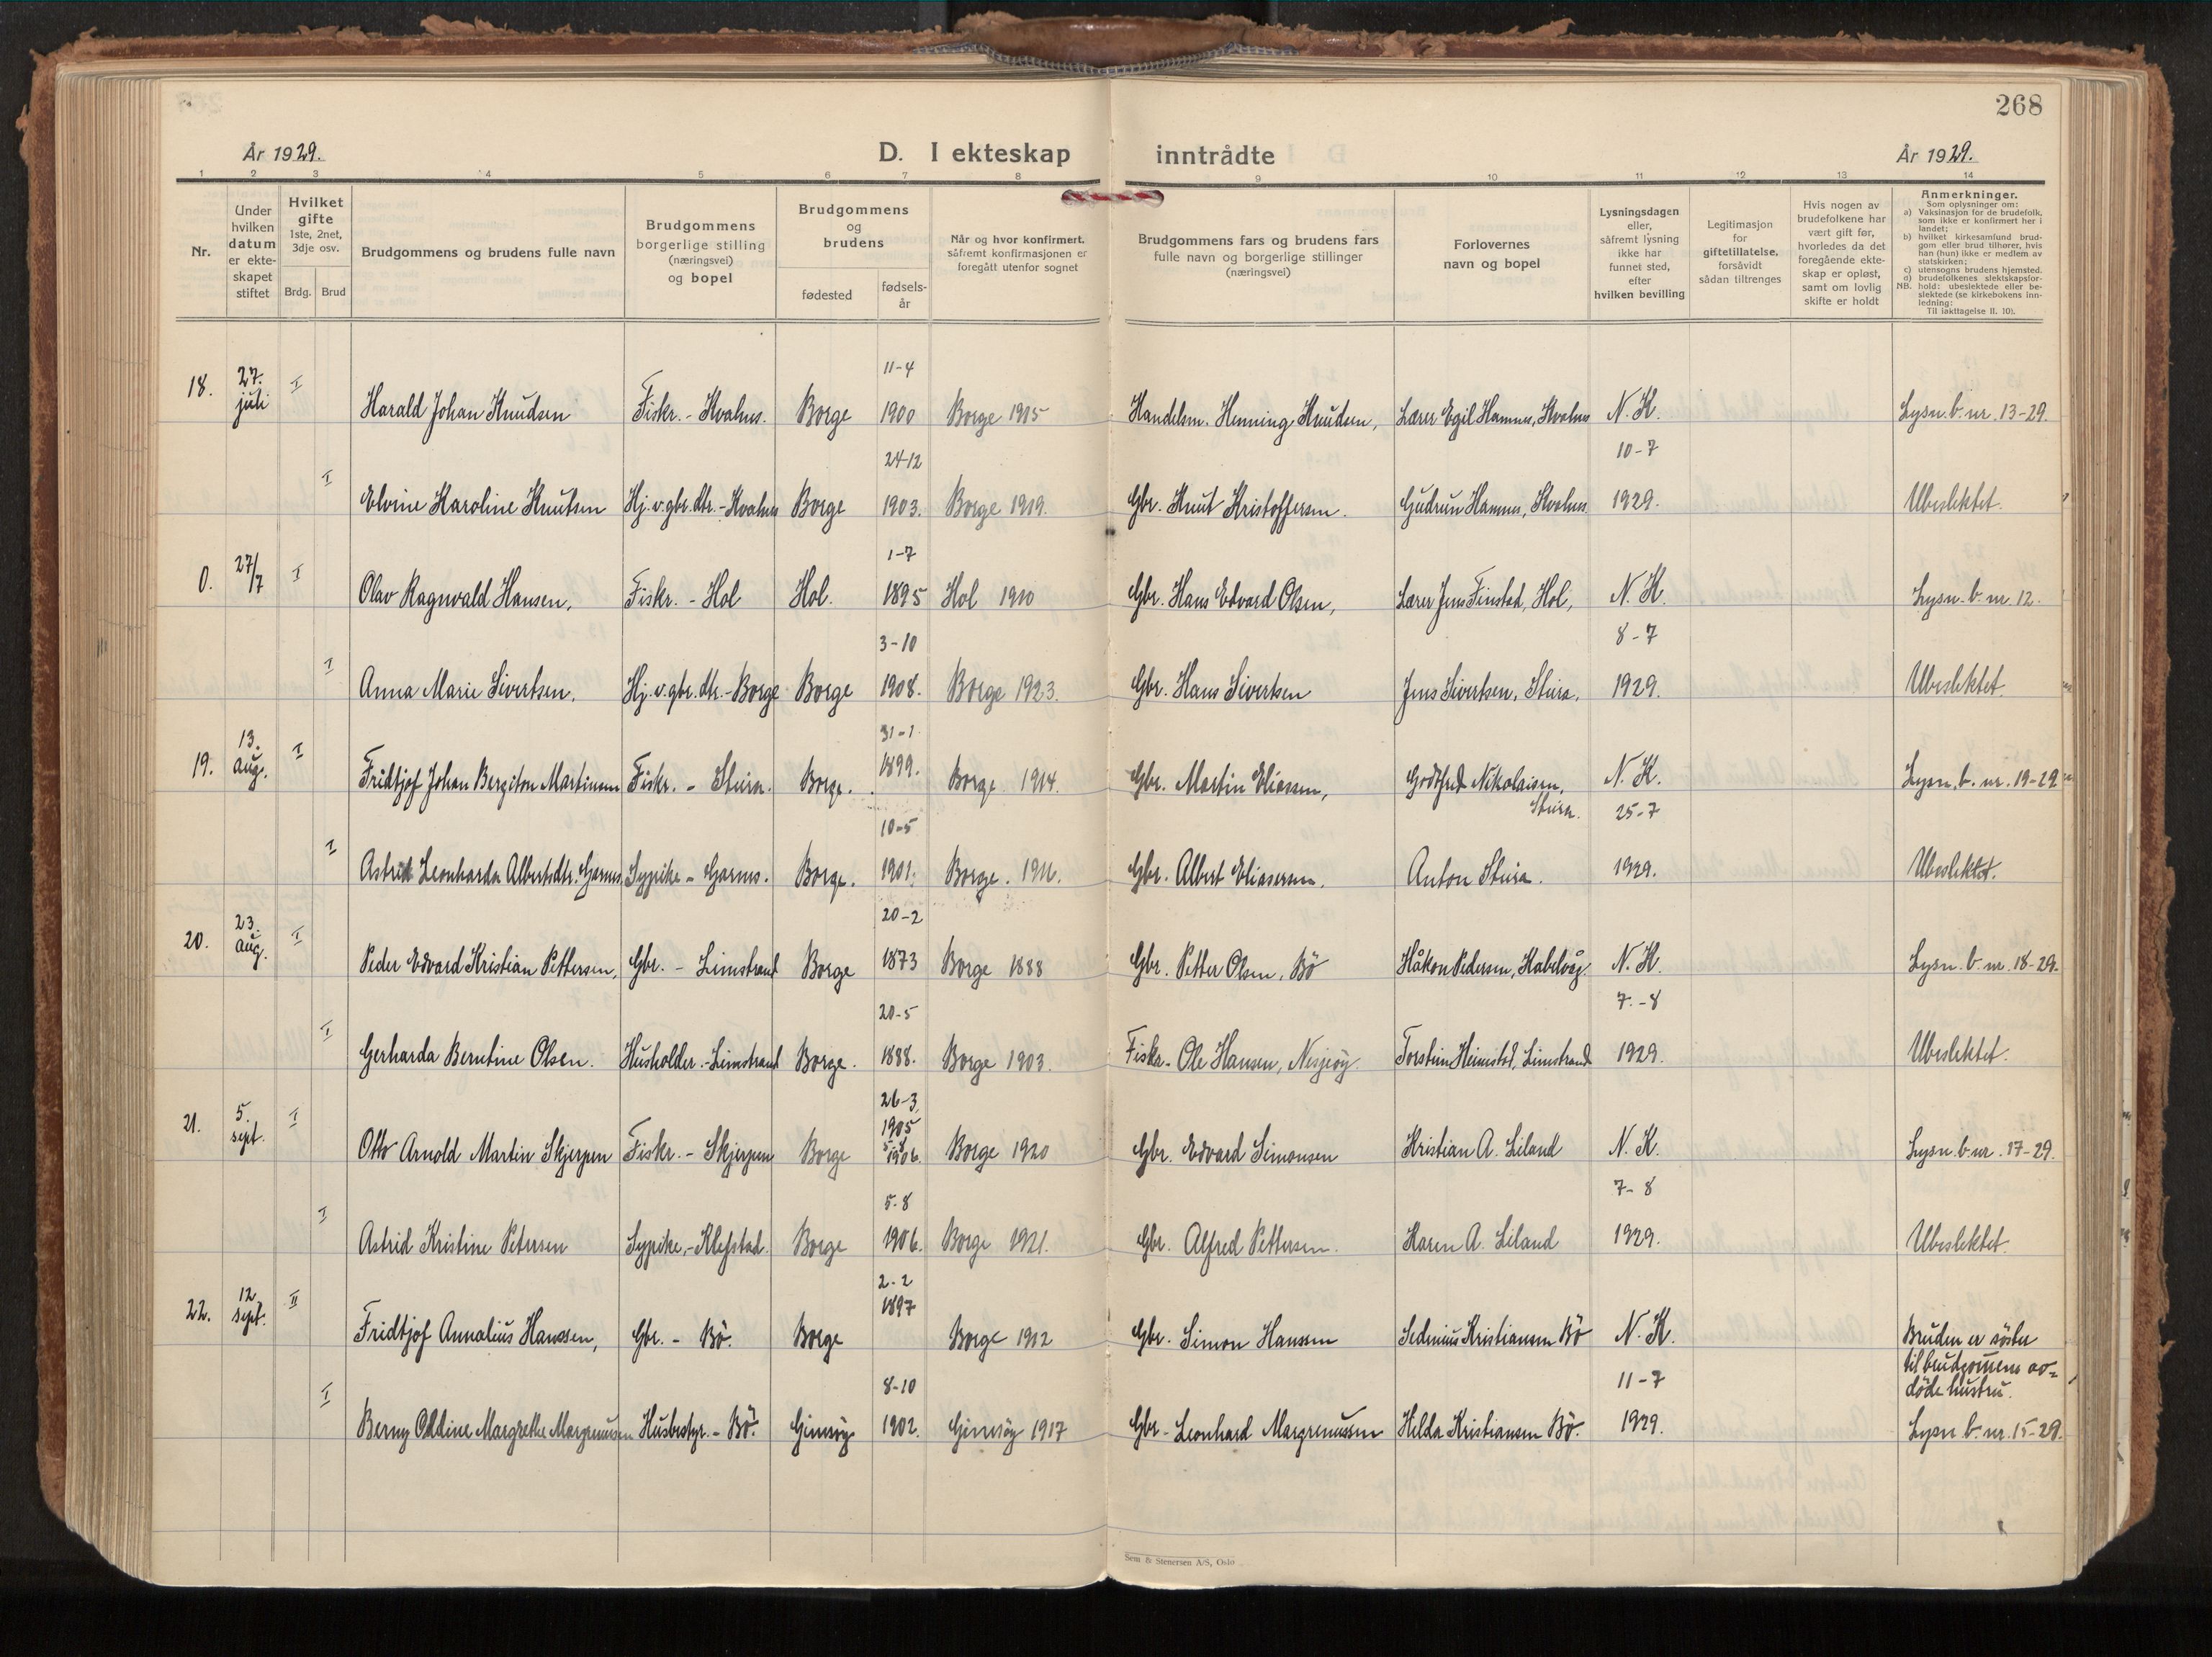 268
År 1929.
D. I ekteskap inntrådte
År 1929.
1 2 3 4 5 6 7 8 9 10 11 12 13 14
Nr.
Under
hvilken
datum
er ekte-
skapet
stiftet
Hvilket
gifte
1ste, 2net,
3dje osv.
Brdg. Brud
Brudgommens og brudens fulle navn
Brudgommens
borgerlige stilling
(næringsvei)
og bopel
Brudgommens
og
brudens
fødested
fødsels-
år
Når og hvor konfirmert.
såfremt konfirmasjonen er
foregått utenfor sognet
Brudgommens fars og brudens fars
fulle navn og borgerlige stillinger
(næringsvei)
Forlovernes
navn og bopel
Lysningsdagen
eller,
såfremt lysning
ikke har
funnet sted,
efter
hvilken bevilling
Legitimasjon
for
giftetillatelse,
forsåvidt
sådan tiltrenges
Hvis nogen av
brudefolkene har
vært gift før,
hvorledes da det
foregående ekte-
skap er opløst,
samt om lovlig
skifte er holdt
Anmerkninger.
Som oplysninger om:
a) Vaksinasjon for de brudefolk,
som ikke er konfirmert her i
landet;
b) hvilket kirkesamfund brud-
gom eller brud tilhører, hvis
han (hun) ikke er medlem av
statskirken;
c) utensogns brudens hjemsted.
d) brudefolkenes slektskapsfor-
NB. hold: ubeslektede eller be-
slektede (se kirkebokens inn-
ledning:
Til iakttagelse II. 10).
18. 27. juli I Harald Johan Knudsen Fiskr. - Kvalnes. Borge 11-4 1900 Borge 1915 Handelsm. Henning Knudsen, Lærer Egil Hamnes, Kvalnes N. K. Lysn. b. nr. 13-29.
10-7
I Elvine Karoline Knutsen Hj. v. gbr. dtr. - Kvalnes Borge 24-12 1903. Borge 1919. Gbr. Knut Kristoffersen. Gudrun Hamnes, Kvalnes 1929. Ubeslektet.
0. 27/7 I Olav Ragnvald Hansen, Fiskr. - Hol Hol. 1-7 1895 Hol 1910 Gbr. Hans Edvard Olsen, Lærer Jens Finstad, Hol, N. K. Lysn. b. nr. 12.
8-7
I Anna Marie Sivertsen, Hj. v. gbr. dtr. - Borge Borge 3-10 1908. Borge 1923. Gbr. Hans Sivertsen Jens Sivertsen, Steira. 1929. Ubeslektet.
19. 13. aug. I Fridtjof Johan Bergiton Martinsen Fiskr. - Steira. Borge. 31-1 1899. Borge 1914. Gbr. Martin Eliassen, Godtfred Nikolaisen, Steira. N. K. Lysn. b. nr. 19-29
25-7
I Astrid Leonharda Albertsdtr. Garnes Sypike - Garnes. Borge. 10-5 1901. Borge. 1916. Gbr. Albert Eliasersen. Anton Steira. 1929. Ubeslektet.
20. 23. aug. I Peder Edvard Kristian Pettersen, Gbr. - Limstrand Borge 20-2 1873 Borge 1888 Gbr. Petter Olsen, Bö Håkon Pedersen, Kabelvåg. N. K. Lysn. b. nr. 18-29.
7.-8
I Gerharda Berntine Olsen. Husholder. - Limstrand Borge. 20-5 1888. Borge 1903. Fiskr. Ole Hansen, Nesjeöy. Torstein Heimstad, Limstrand 1929. Ubeslektet.
21. 5. sept. I Otto Arnold Martin Skjerpen Fiskr. - Skjerpen Borge 26-3 1905 5-8 1906. Borge 1920 Gbr. Edvard Simonsen Kristian A. Liland N. K. Lysn. b. nr. 17-29.
7-8
I Astrid Kristine Petersen Sypike, - Klefstad. Borge 5-8 1906. Borge 1921. Gbr. Alfred Pettersen. Karen A. Liland 1929. Ubeslektet.
22. 12 sept. II Fridtjof Annalius Hanssen, Gbr. - Bö. Borge 2-2 1897 Borge 1912 Gbr. Simon Hanssen Sedenius Kristiansen Bö N. K. Bruden er söster
til brudgomens av-
döde hustru.
11-7
I Berny Oldine Margrethe Margenussen Husbestyr. - Bö. Gimsöy 8-10 1902. Gimsöy 1917 Gbr. Leonhard Margrenussen Helda Kristiansen Bö. 1929. Lysn. b. nr. 15-29.
Sem & Stenersen A/S, Oslo